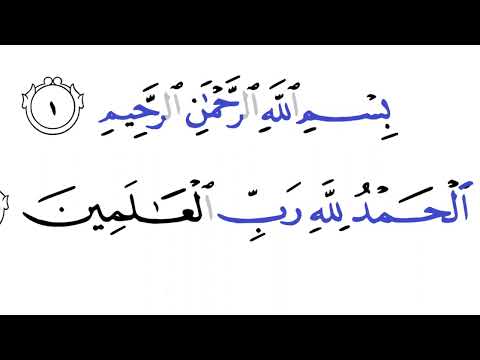 بِسْمِ ٱللَّهِ ٱلرَّحْمَٰنِ ٱلرَّحِيمِ ١
ٱلْحَمْدُ لِلَّهِ رَبِّ ٱلْعَٰلَمِينَ